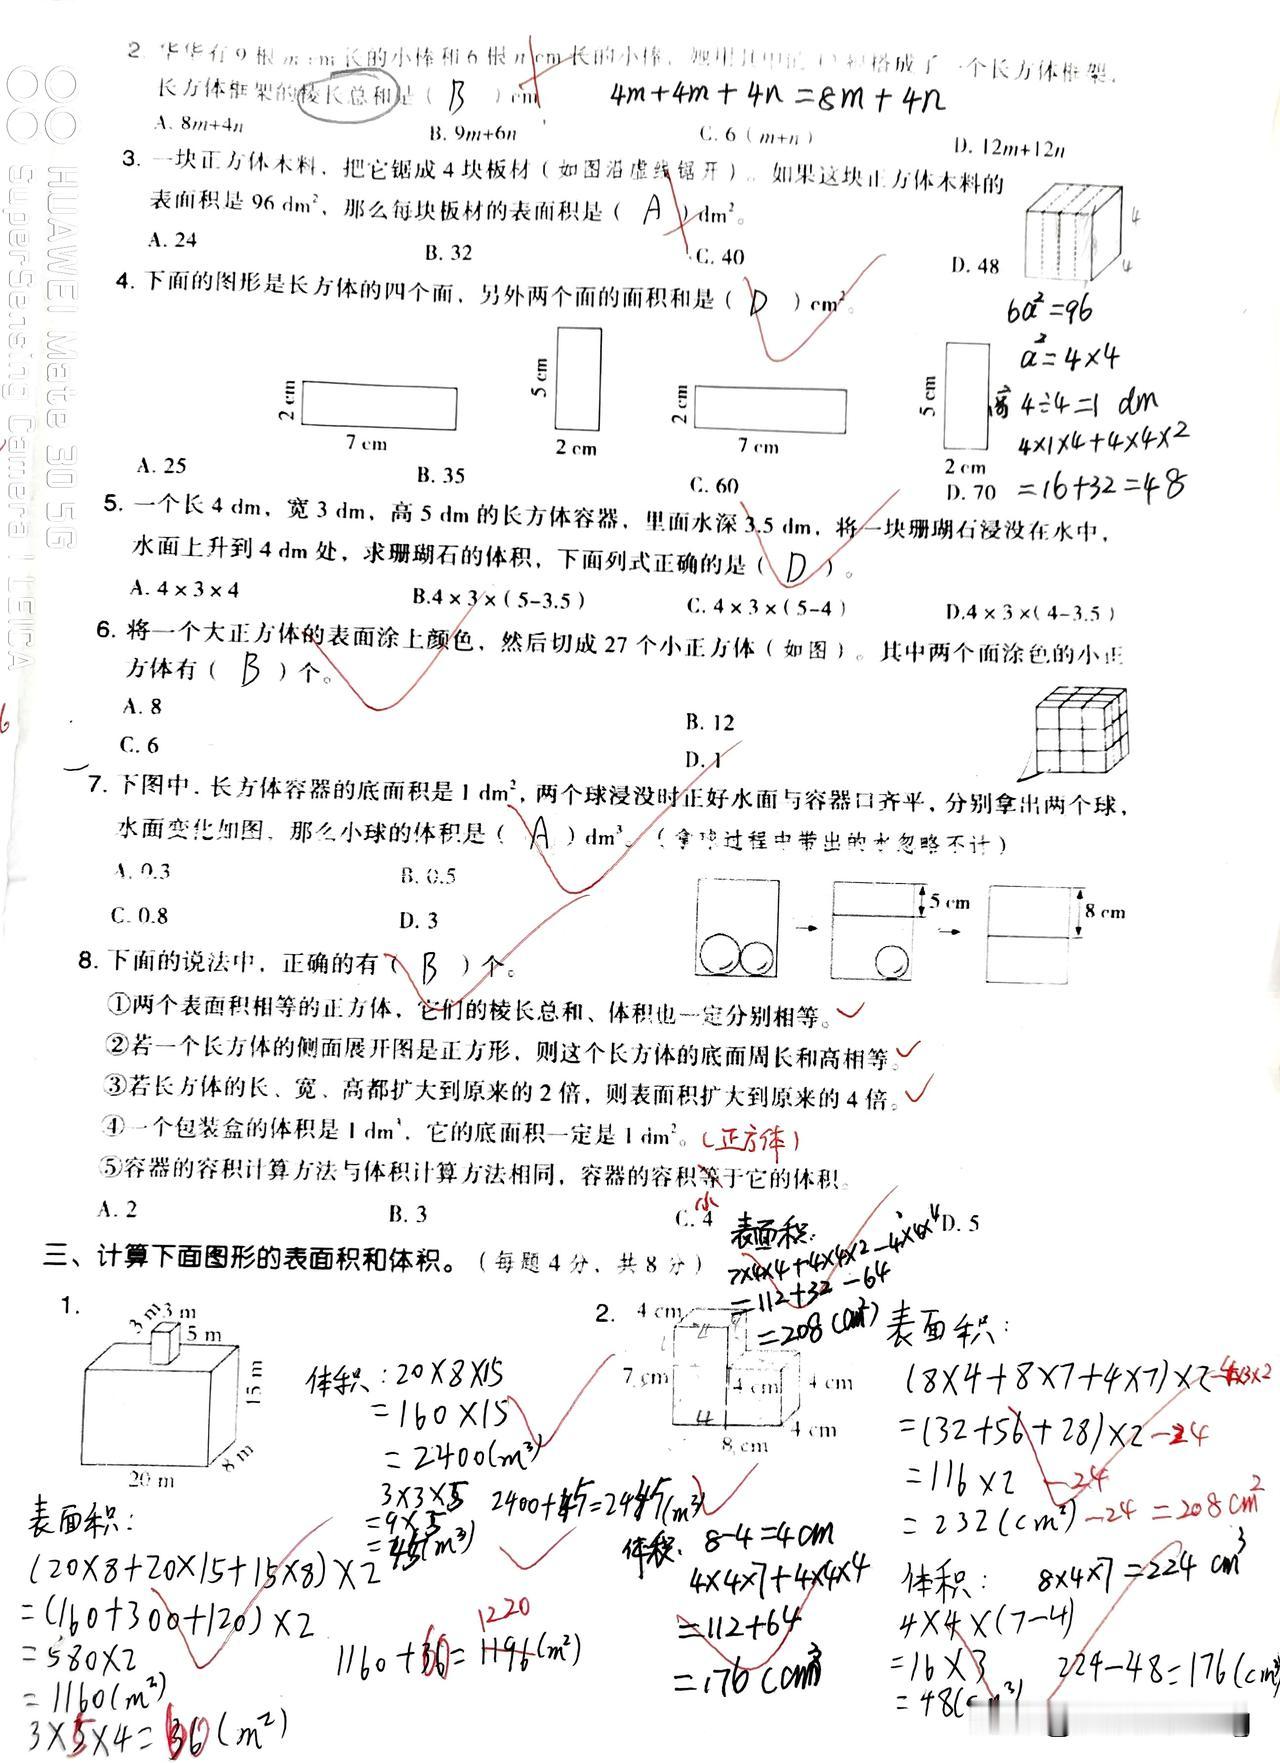 2. 华华有9根m cm长的小棒和6根n cm长的小棒，她用其中的12根搭成了一个长方体框架，
长方体框架的棱长总和是（ B ）cm
4m+4m+4n=8m+4n
A. 8m+4n B. 9m+6n C. 6（m+n） D. 12m+12n
3. 一块正方体木料，把它锯成4块板材（如图沿虚线锯开）。如果这块正方体木料的
表面积是96 dm²，那么每块板材的表面积是（ A ）dm²。
A. 24 B. 32 C. 40 D. 48
4
4
6a²=96
a²=4×4
高 4÷4=1 dm
4×1×4+4×4×2
=16+32=48
4. 下面的图形是长方体的四个面，另外两个面的面积和是（ D ）cm²。
2 cm 7 cm 5 cm 2 cm 2 cm 7 cm 5 cm 2 cm
A. 25 B. 35 C. 60 D. 70
5. 一个长4 dm，宽3 dm，高5 dm的长方体容器，里面水深3.5 dm，将一块珊瑚石浸没在水中，
水面上升到4 dm处，求珊瑚石的体积，下面列式正确的是（ D ）。
A. 4×3×4 B.4×3×（5-3.5） C. 4×3×（5-4） D.4×3×（4-3.5）
6. 将一个大正方体的表面涂上颜色，然后切成27个小正方体（如图）。其中两个面涂色的小正
方体有（ B ）个。
A. 8 B. 12
C. 6 D. 1
7. 下图中，长方体容器的底面积是1 dm²，两个球浸没时正好水面与容器口齐平，分别拿出两个球，
水面变化如图，那么小球的体积是（ A ）dm³。（拿球过程中带出的水忽略不计）
A. 0.3 B. 0.5
C. 0.8 D. 3
5 cm 8 cm
8. 下面的说法中，正确的有（ B ）个。
①两个表面积相等的正方体，它们的棱长总和、体积也一定分别相等。
②若一个长方体的侧面展开图是正方形，则这个长方体的底面周长和高相等。
③若长方体的长、宽、高都扩大到原来的2倍，则表面积扩大到原来的4倍。
④一个包装盒的体积是1 dm³，它的底面积一定是1 dm²。（正方体）
⑤容器的容积计算方法与体积计算方法相同，容器的容积等于它的体积。
小
A. 2 B. 3 C. 4 D. 5
三、计算下面图形的表面积和体积。（每题4分，共8分）
1.
3 m 3 m
5 m
15 m
8 m
20 m
体积：20×8×15
=160×15
=2400(m³)
3×3×5
=9×5
=45(m³)
2400+45=2445(m³)
表面积：
(20×8+20×15+15×8)×2
=(160+300+120)×2
=580×2
=1160(m²)
3×5×4=60(m²)
1220
1160+60=1196(m²)
2.
4 cm
7 cm
4 cm
4 cm
4 cm
8 cm
4
4
表面积：
7×4×4+4×4×2-4×4×4
=112+32-64
=208(cm²)
体积：8-4=4cm
4×4×7+4×4×4
=112+64
=176(cm³)
表面积：
(8×4+8×7+4×7)×2-4×3×2
=(32+56+28)×2-24
=116×2-24
=232(cm²)-24=208cm²
体积：8×4×7=224cm³
4×4×(7-4)
=16×3
=48(cm³)
224-48=176(cm³)
HUAWEI Mate 30 5G
SuperSensing Camera | LEICA